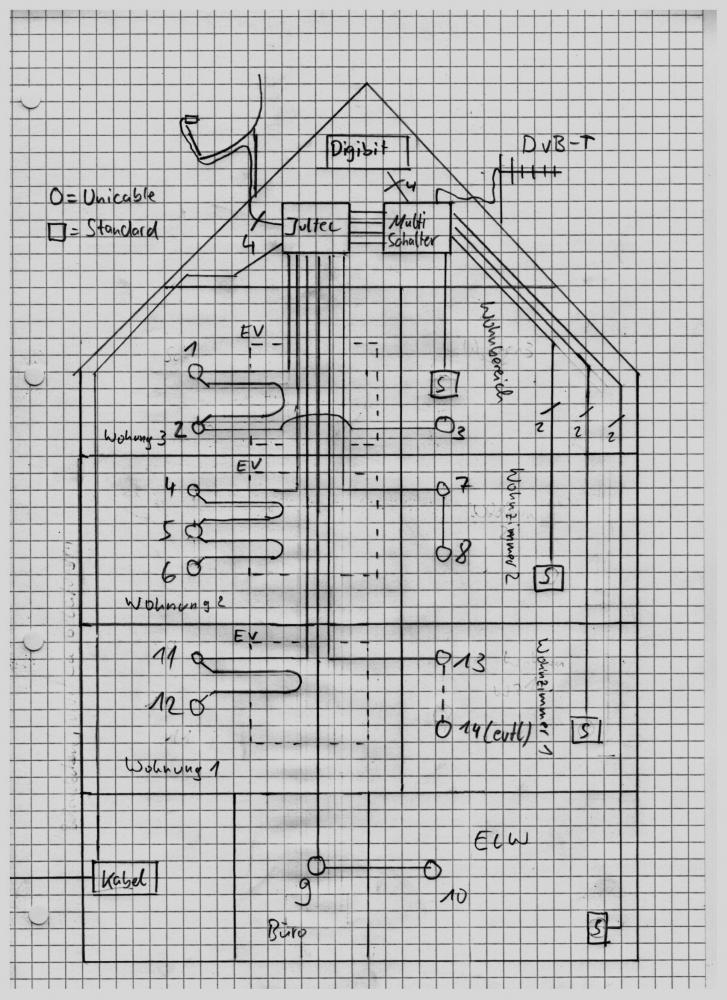 DVB-T
Digibit
4
O = Unicable
□ = Standard
4
Jultec
Multi
Schalter
EV
1
S
Wohnbereich
2
3
2
2
2
Wohung 3
EV
4
7
5
8
6
Wohnzimmer 2
S
Wohnung 2
EV
11
13
12
14 (evtl)
Wohnzimmer 1
S
Wohnung 1
ELW
Kabel
9
10
Büro
S